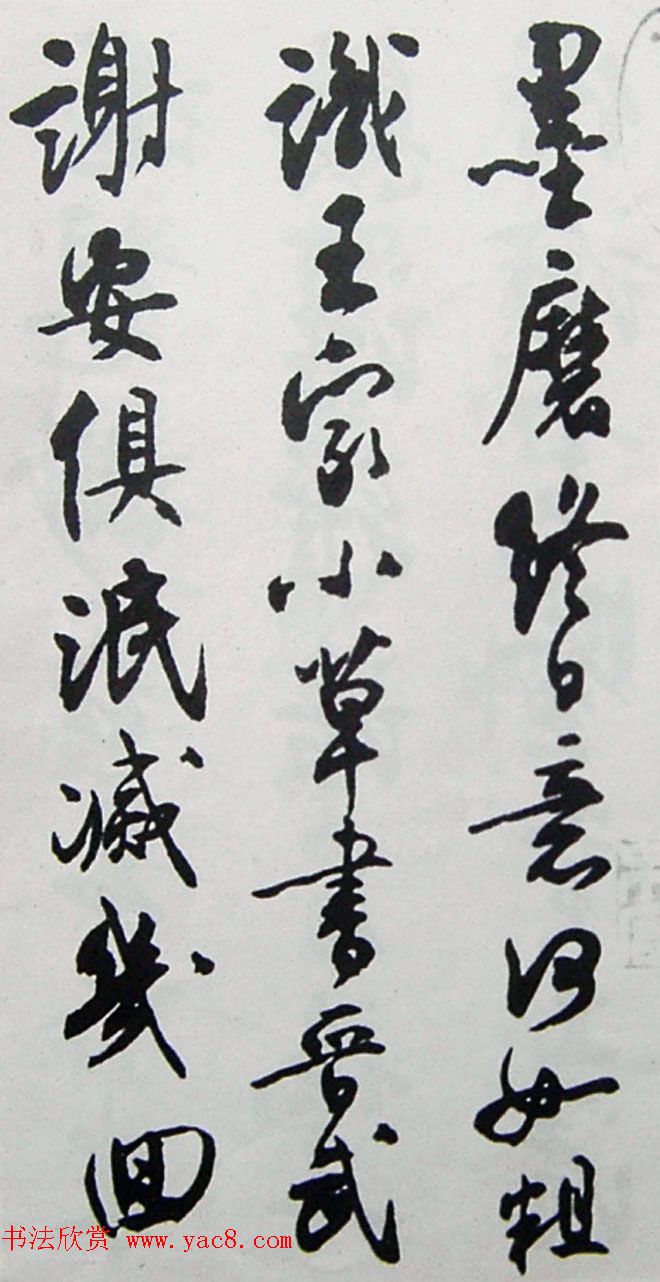 墨磨終日意何如粗
識王家小草書晉武
謝安俱泯滅幾回
书法欣赏 www.yac8.com